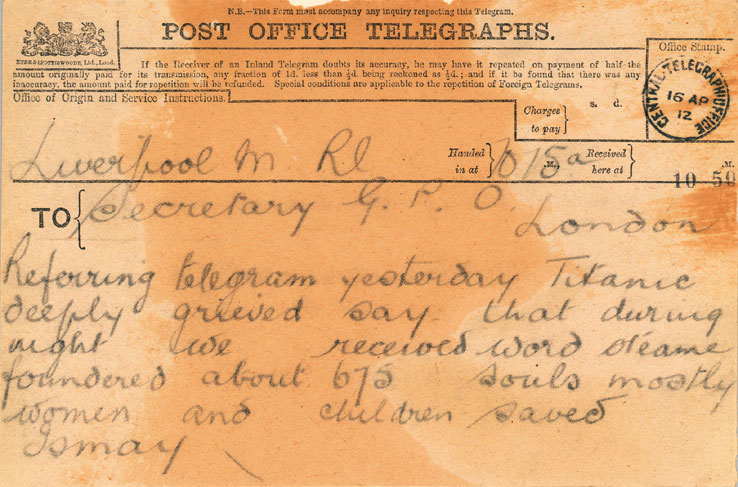 N.B.—This Form must accompany any inquiry respecting this Telegram.
POST OFFICE TELEGRAPHS.
EYRE & SPOTTISWOODE, Ltd., Lond.
If the Receiver of an Inland Telegram doubts its accuracy, he may have it repeated on payment of half the
amount originally paid for its transmission, any fraction of 1d. less than ½d. being reckoned as ½d.; and if it be found that there was any
inaccuracy, the amount paid for repetition will be refunded. Special conditions are applicable to the repetition of Foreign Telegrams.
Office of Origin and Service Instructions.
Office Stamp.
CENTRAL TELEGRAPH OFFICE
16 AP
12
Charges
to pay
s. d.
Liverpool M Rl
Handed
in at
1015a
M.
Received
here at
10 50
M.
TO
Secretary G. P. O.
London
Referring telegram yesterday Titanic
deeply grieved say that during
night we received word steame
foundered about 675 souls mostly
women and children saved
Ismay